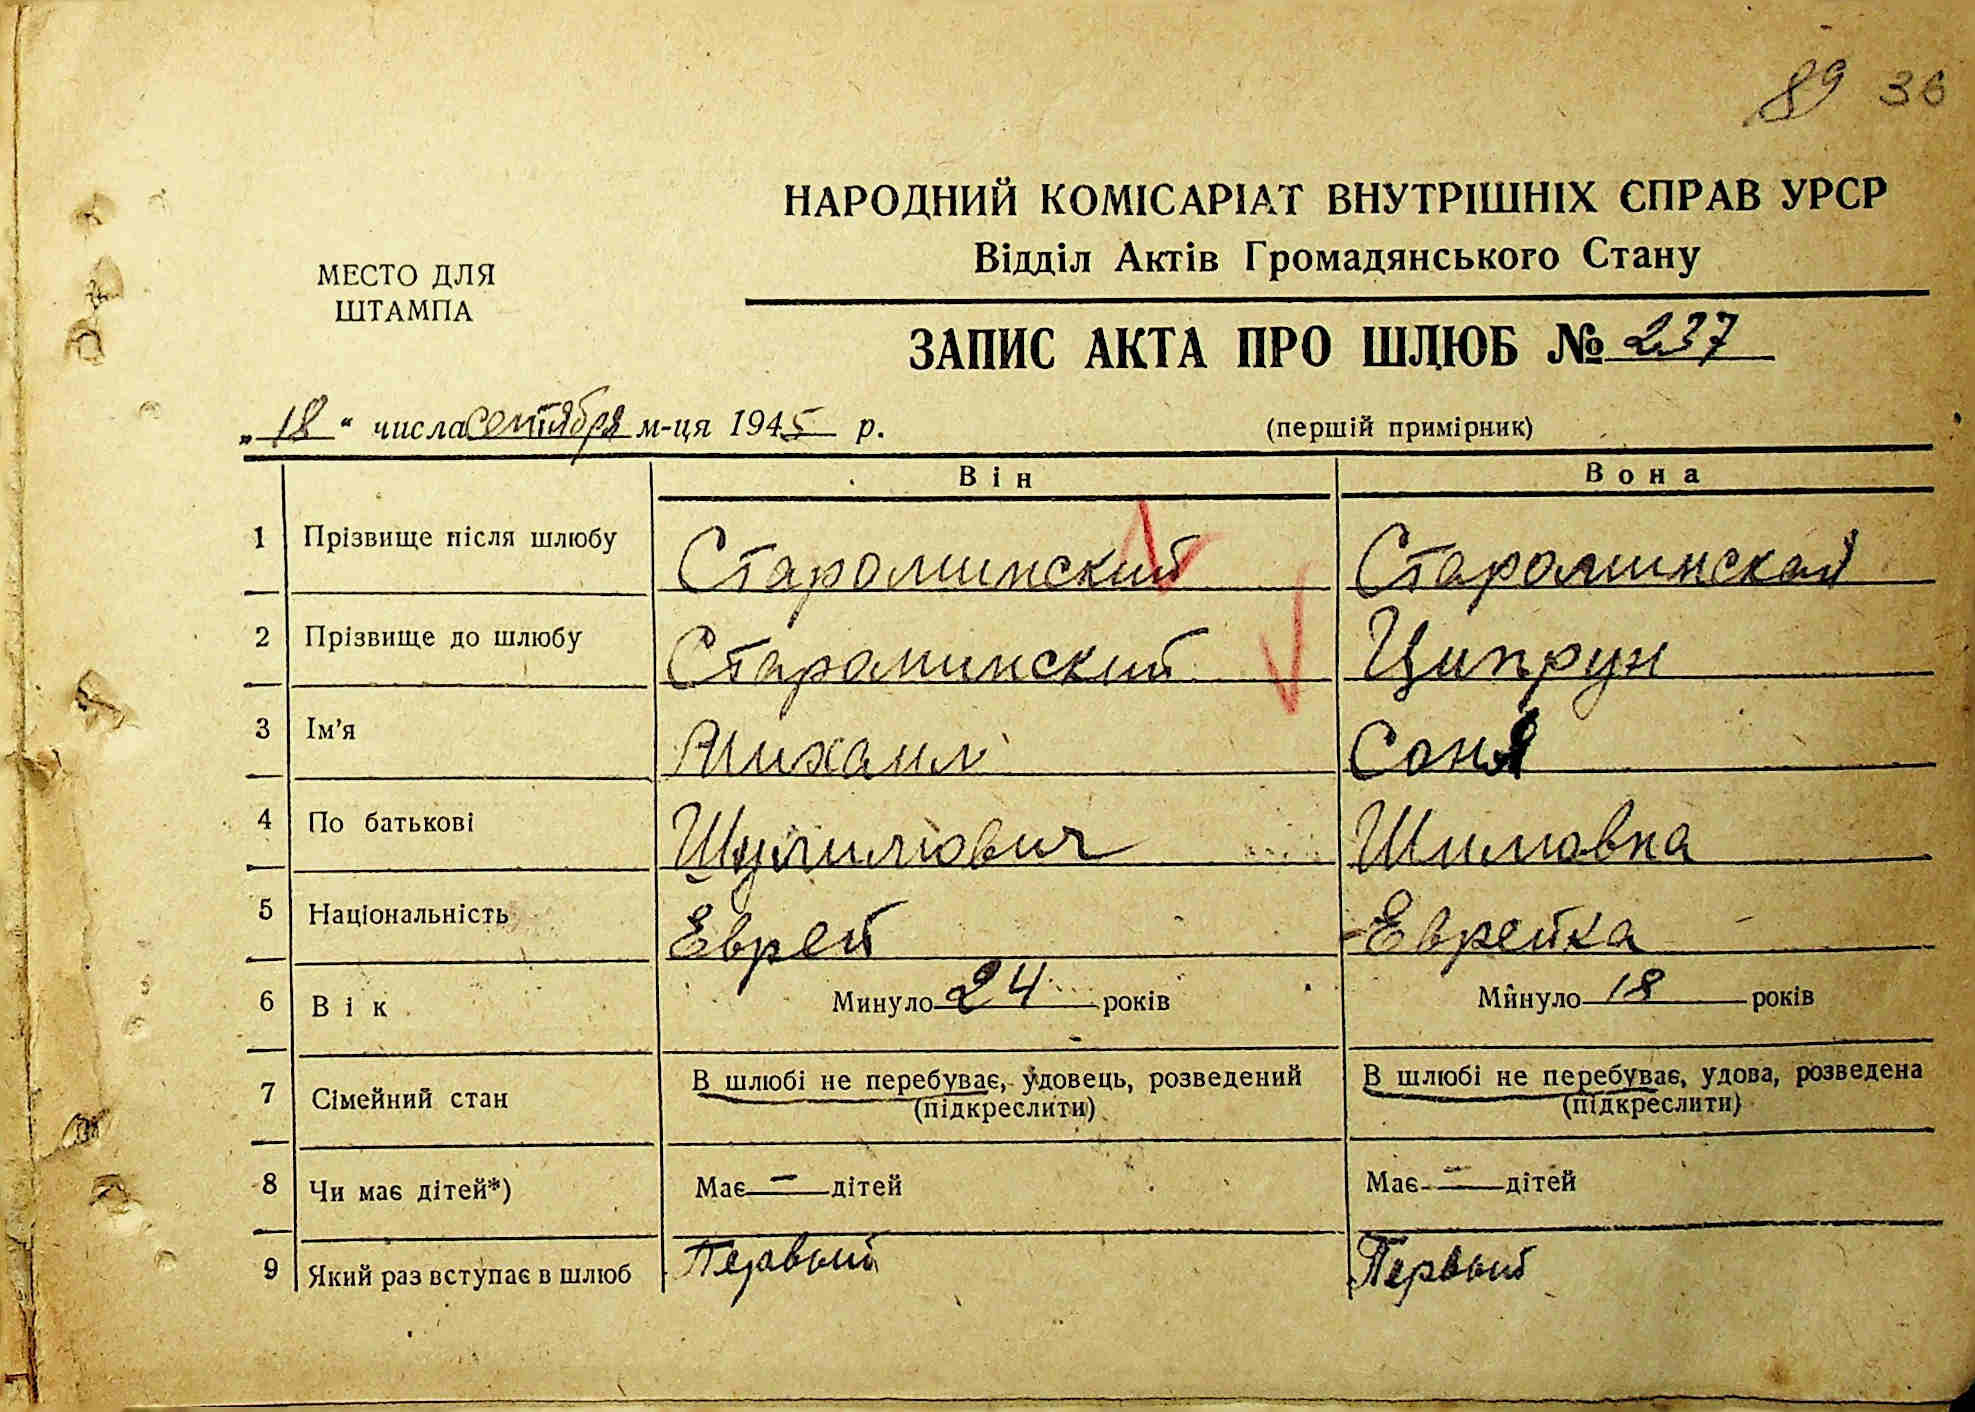 89 36
НАРОДНИЙ КОМІСАРІАТ ВНУТРІШНІХ ЄПРАВ УРСР
Відділ Актів Громадянського Стану
МЕСТО ДЛЯ
ШТАМПА
ЗАПИС АКТА ПРО ШЛЮБ № 237
„18“ числа сентября м-ця 1945 р. (першій примірник)
Він Вона
1 Прізвище після шлюбу Староминский Староминская
2 Прізвище до шлюбу Староминский Ципрун
3 Ім'я Михаил Соня
4 По батькові Шулимович Шимовна
5 Національність Еврей Еврейка
6 Вік Минуло 24 років Минуло 18 років
7 Сімейний стан В шлюбі не перебуває, удовець, розведений В шлюбі не перебуває, удова, розведена
(підкреслити) (підкреслити)
8 Чи має дітей*) Має — дітей Має — дітей
9 Який раз вступає в шлюб Первый Первый